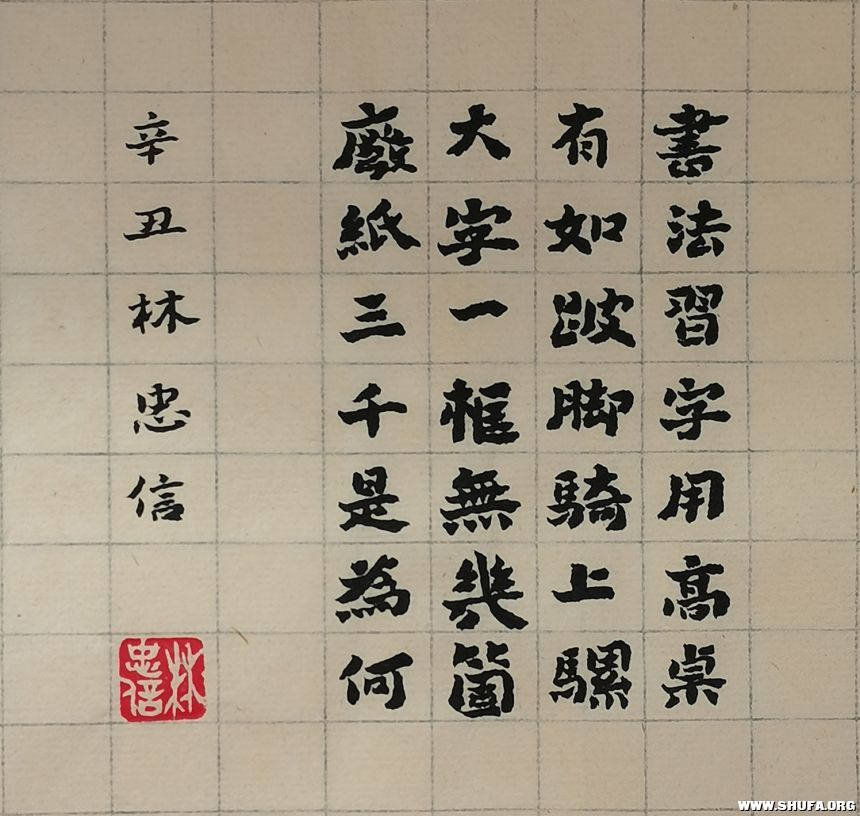 書法習字用高桌
有如跛脚騎上騾
大字一框無幾箇
廢紙三千是為何
辛丑林忠信
林忠信
WWW.SHUFA.ORG